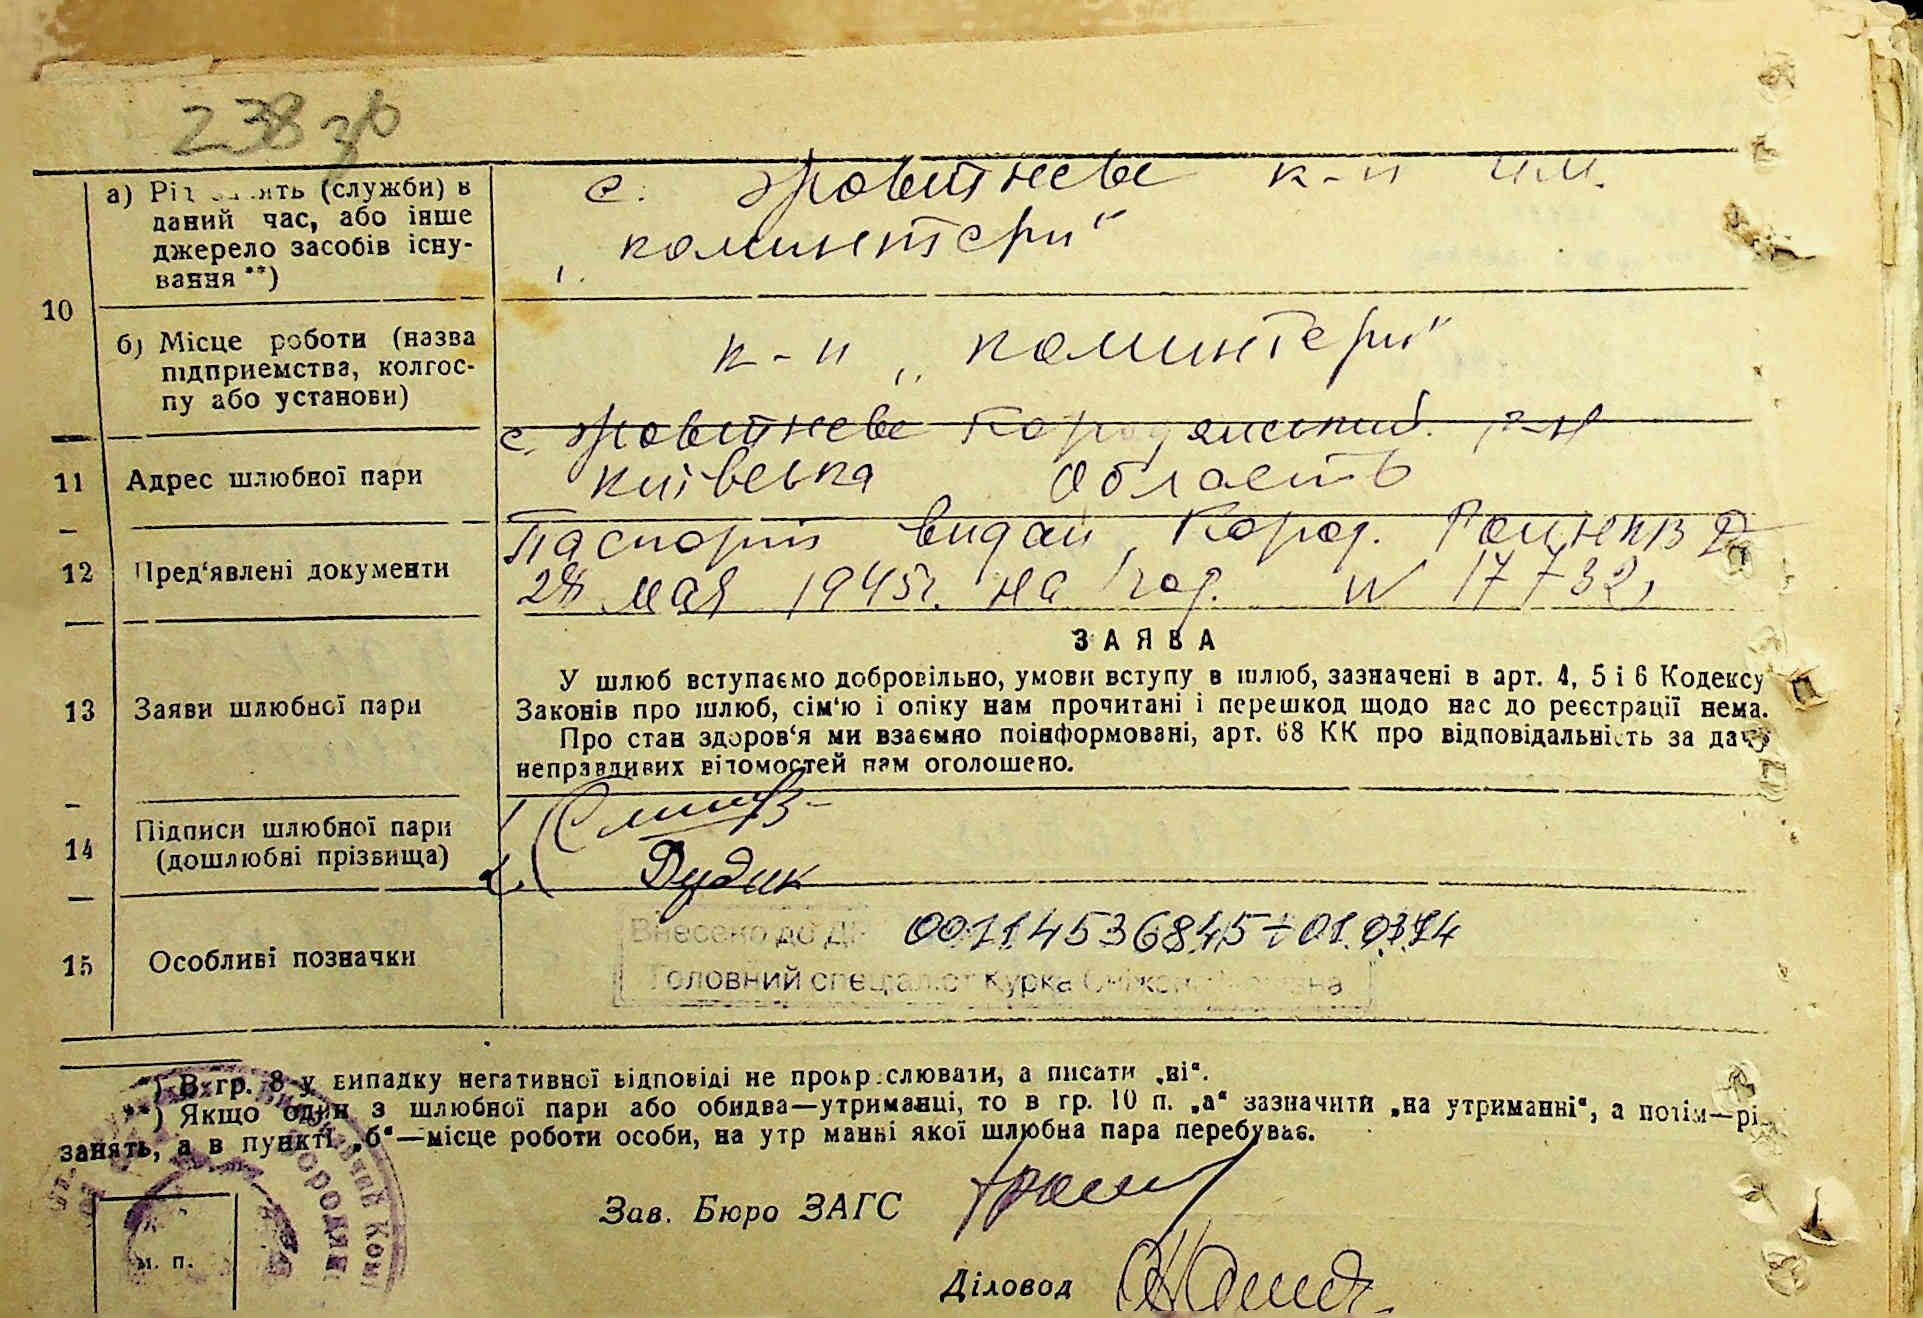 238 зв
10
а) Рід занять (служби) в
даний час, або інше
джерело засобів існу-
вання **)
с. к-п им.
"коминтерн"
б) Місце роботи (назва
підприємства, колгос-
пу або установи)
к-п "коминтерн"
11
Адрес шлюбної пари
с. Бородянський р-н
київська область
12
Пред‘явлені документи
Паспорт видан Бород. НКВД
28 мая 1945г. на 1 год. N 17732,
13
Заяви шлюбної пари
ЗАЯВА
У шлюб вступаємо добровільно, умови вступу в шлюб, зазначені в арт. 4, 5 і 6 Кодексу
Законів про шлюб, сім‘ю і опіку нам прочитані і перешкод щодо нас до реєстрації нема.
Про стан здоров‘я ми взаємно поінформовані, арт. 68 КК про відповідальність за дачу
неправдивих відомостей нам оголошено.
14
Підписи шлюбної пари
(дошлюбні прізвища)
1.
2. Дудик
15
Особливі позначки
Внесено до 00114536845 01.03.14
Головний спеціаліст Курка
*) В гр. 8 у випадку негативної відповіді не прокреслювати, а писати „ні“.
**) Якщо один з шлюбної пари або обидва—утриманці, то в гр. 10 п. „а“ зазначити „на утриманні“, а потім—рід
занять, а в пункті „б“—місце роботи особи, на утриманні якої шлюбна пара перебуває.
Зав. Бюро ЗАГС
м. п.
Діловод